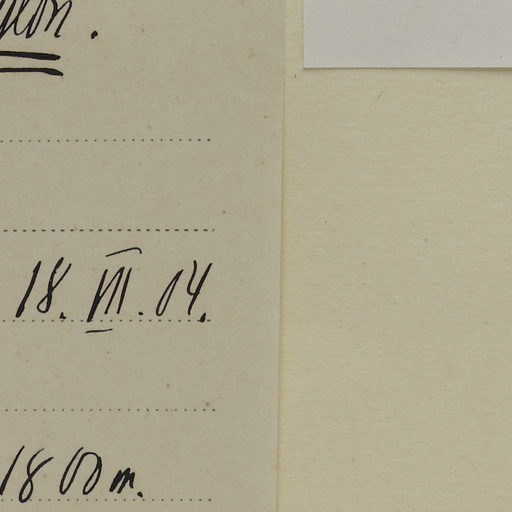 18. VII. 04.
1800 m.